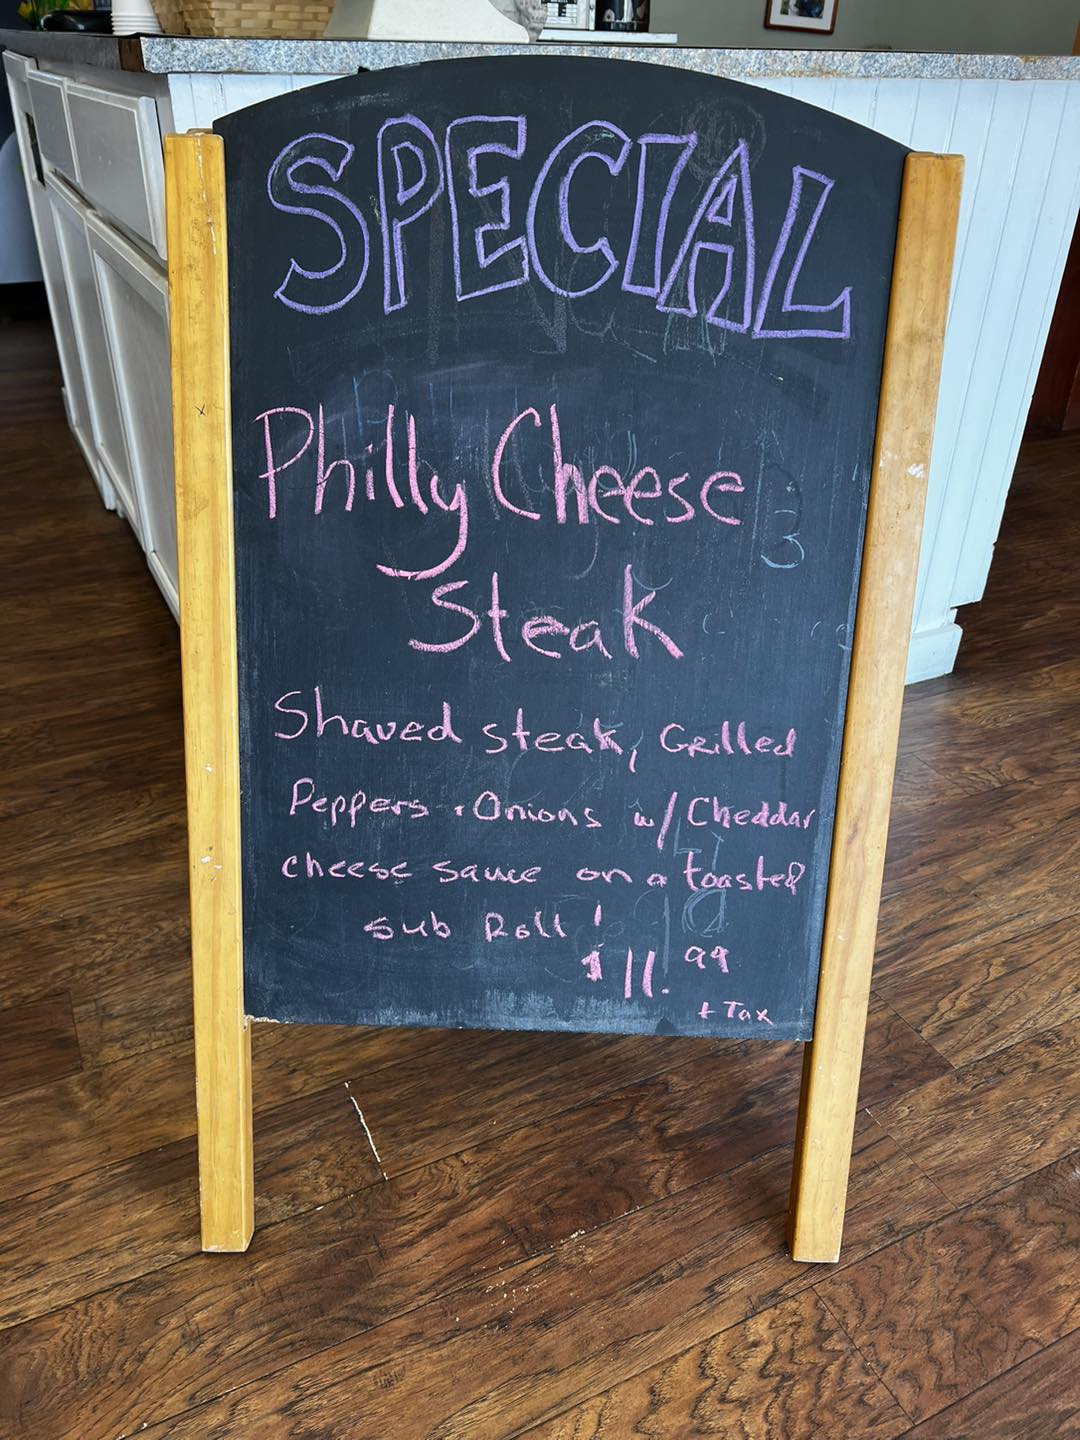 SPECIAL
Philly Cheese
Steak
Shaved steak, Grilled
Peppers + Onions w/ Cheddar
cheese sauce on a toasted
sub Roll!
$11.99
+ Tax